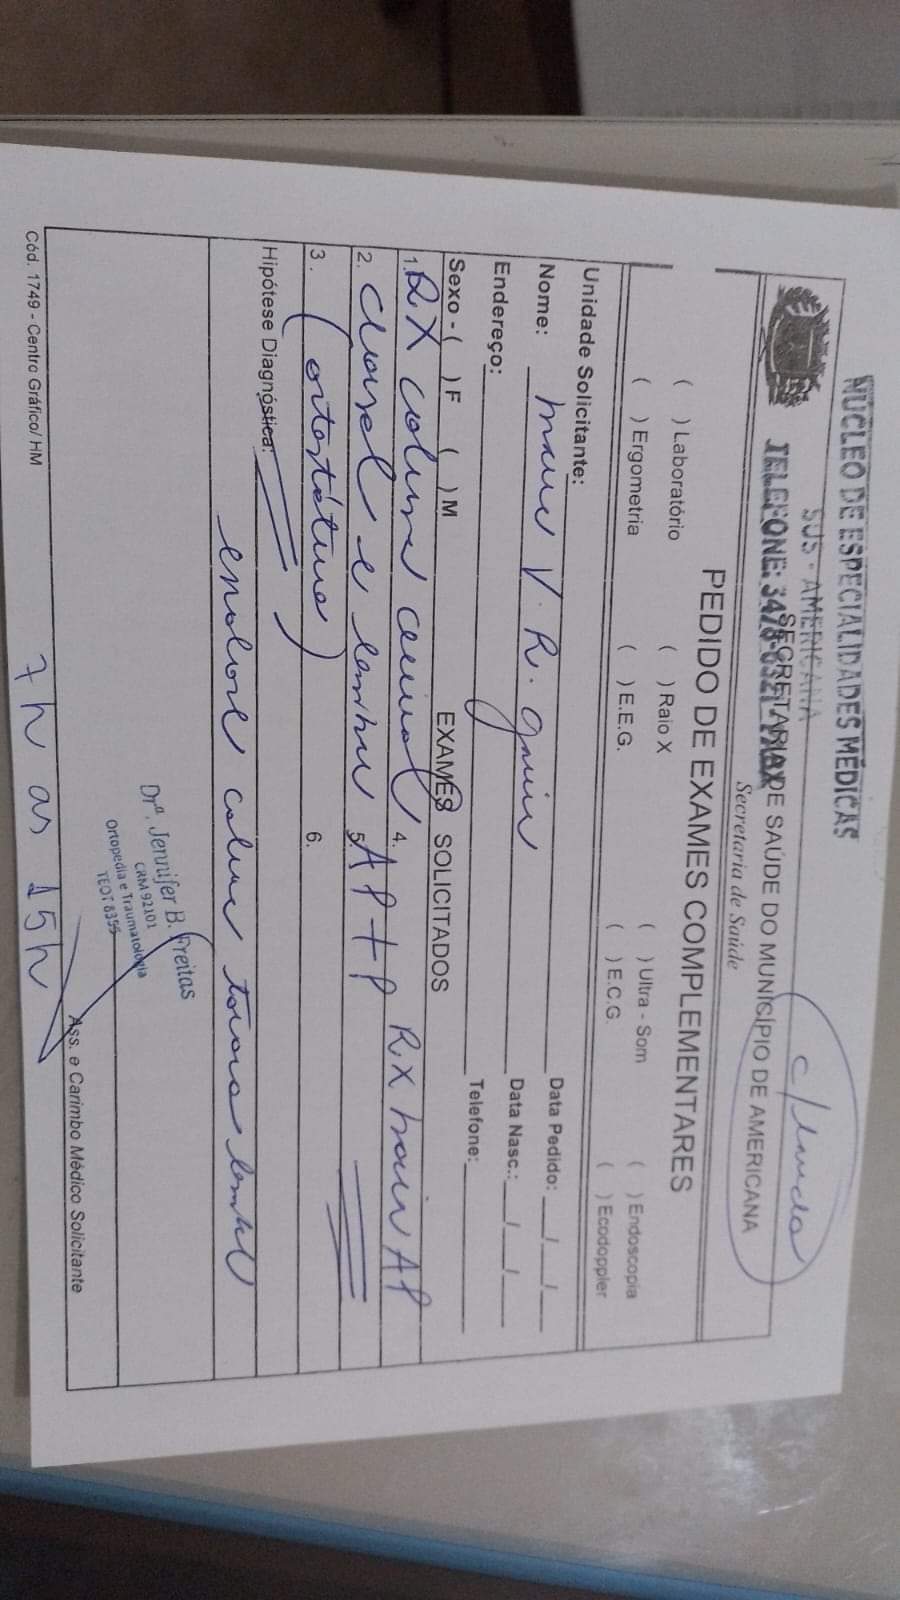 NÚCLEO DE ESPECIALIDADES MÉDICAS
SUS - AMERICANA
TELEFONE:
c/ laudo
SECRETARIA DE SAÚDE DO MUNICÍPIO DE AMERICANA
Secretaria de Saúde
PEDIDO DE EXAMES COMPLEMENTARES
( ) Laboratório ( ) Raio X ( ) Ultra - Som ( ) Endoscopia
( ) Ergometria ( ) E.E.G. ( ) E.C.G. ( ) Ecodoppler
Unidade Solicitante:
Nome: V. R. Data Pedido: __/__/__
Endereço: Data Nasc.: __/__/__
Sexo - ( ) F ( ) M Telefone:
EXAMES SOLICITADOS
1. RX coluna cervical 4. RX bacia AP
2. dorsal e lombar 5. AP + P
3. (ortostática) 6.
Hipótese Diagnóstica:
escoliose coluna toraco lombar
Drª. Jennifer B. Freitas
CRM 92101
Ortopedia e Traumatologia
TEOT 8355
Ass. e Carimbo Médico Solicitante
Cód. 1749 - Centro Gráfico/ HM
7h as 15h